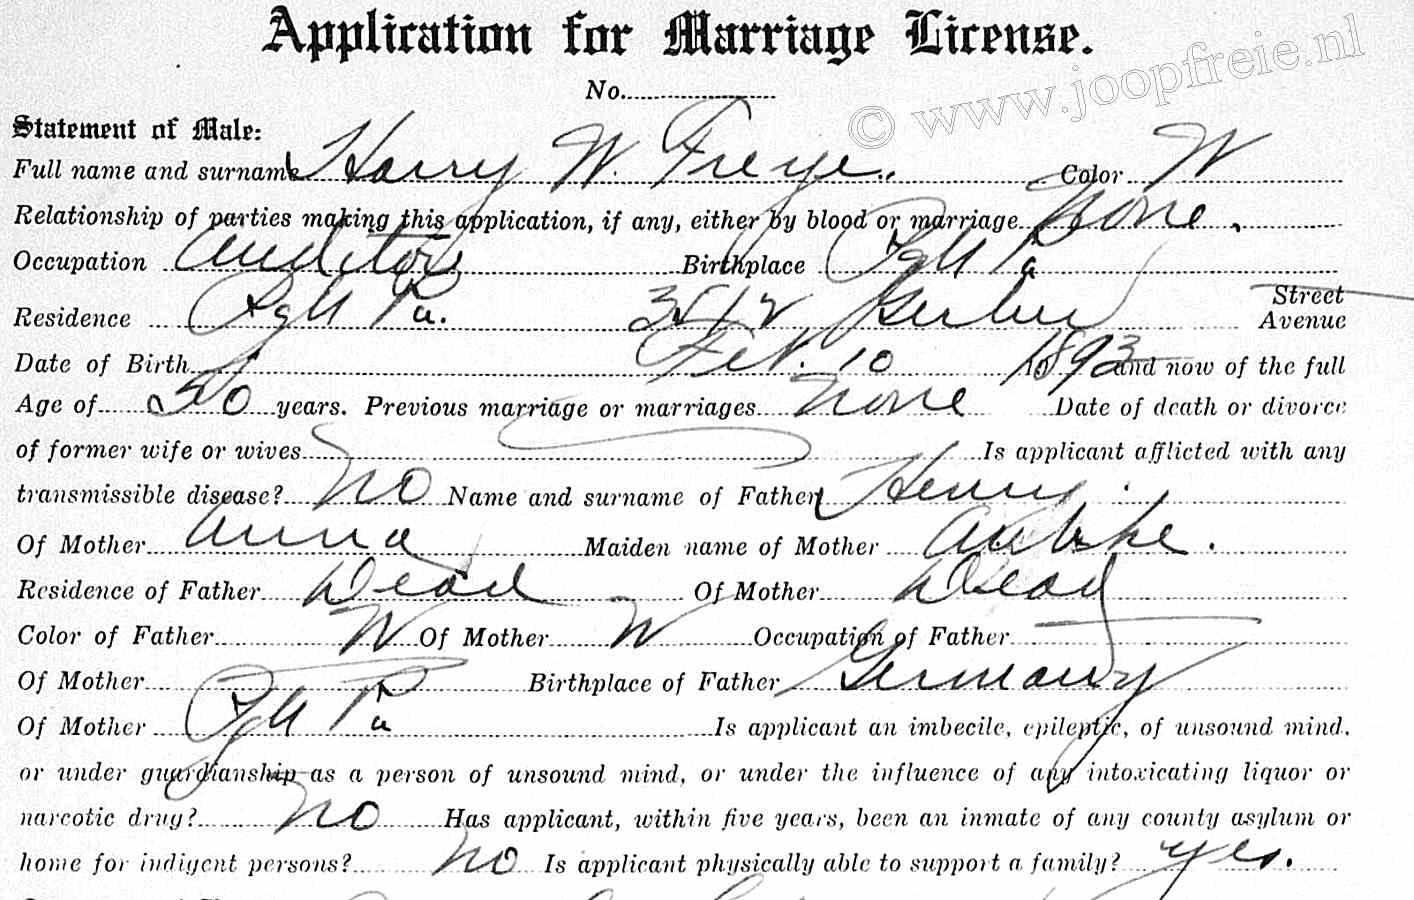 Application for Marriage License.
© www.joopfreie.nl
No.
Statement of Male:
Full name and surname Harry W. Freye. Color W
Relationship of parties making this application, if any, either by blood or marriage None.
Occupation Auditor Birthplace Pgh Pa
Residence Pgh Pa. Street
Avenue
Date of Birth Feb. 10 1893 and now of the full
Age of 50 years. Previous marriage or marriages None Date of death or divorce
of former wife or wives Is applicant afflicted with any
transmissible disease? No Name and surname of Father Henry
Of Mother Anna Maiden name of Mother
Residence of Father Dead Of Mother Dead
Color of Father W Of Mother W Occupation of Father
Of Mother Birthplace of Father Germany
Of Mother Pgh Pa Is applicant an imbecile, epileptic, of unsound mind,
or under guardianship as a person of unsound mind, or under the influence of any intoxicating liquor or
narcotic drug? No Has applicant, within five years, been an inmate of any county asylum or
home for indigent persons? No Is applicant physically able to support a family? Yes.